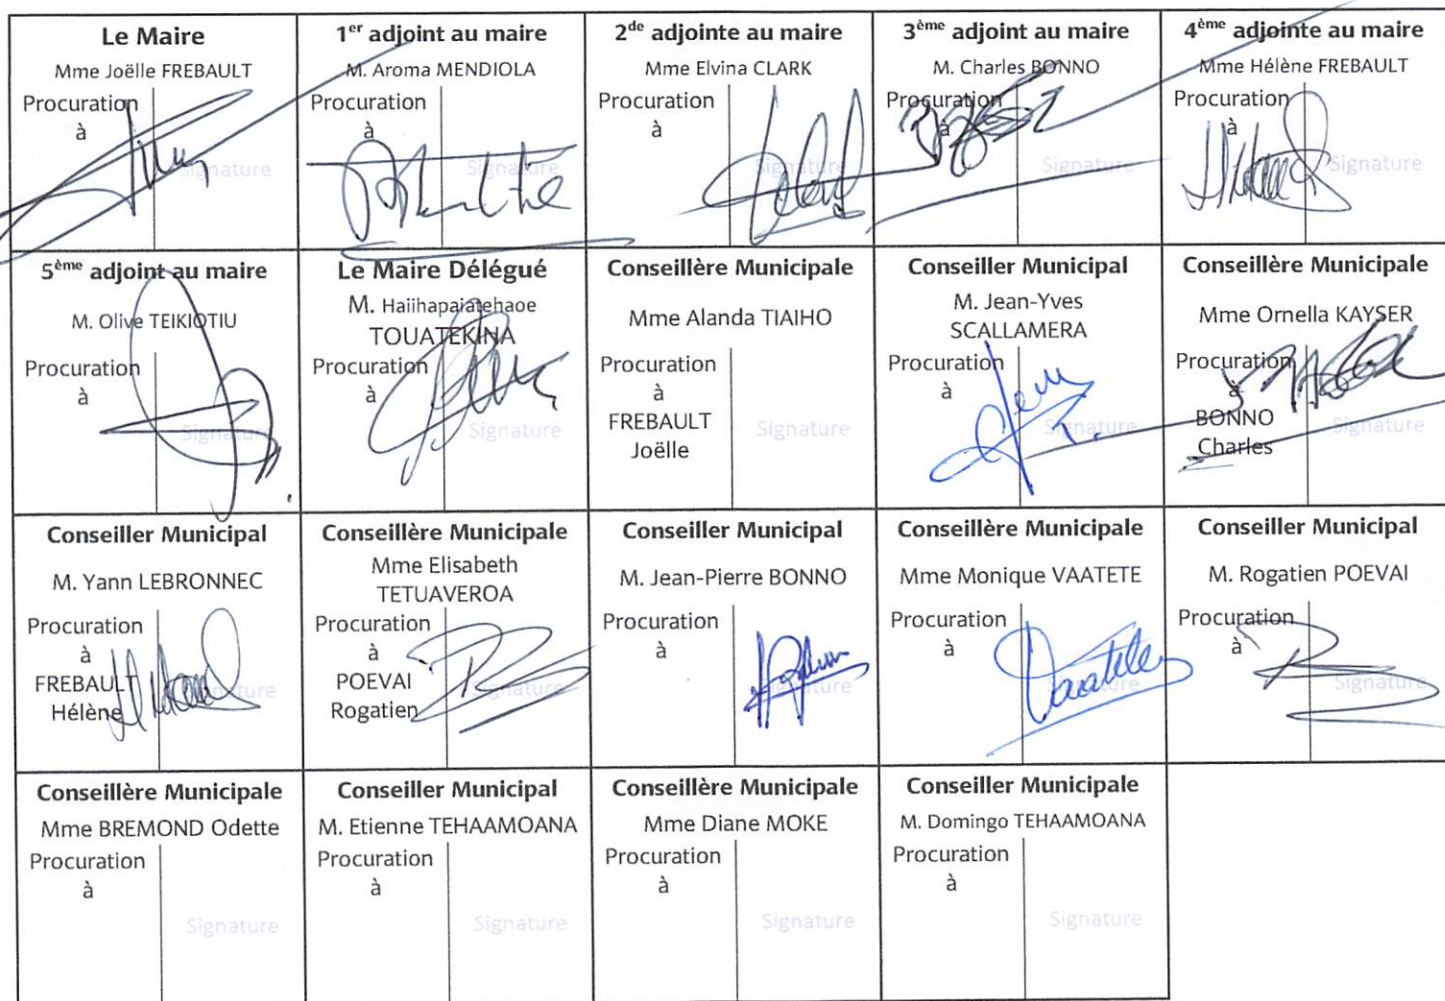 Le Maire
Mme Joëlle FREBAULT
Procuration
à
Signature
1er adjoint au maire
M. Aroma MENDIOLA
Procuration
à
Signature
2de adjointe au maire
Mme Elvina CLARK
Procuration
à
Signature
3ème adjoint au maire
M. Charles BONNO
Procuration
à
Signature
4ème adjointe au maire
Mme Hélène FREBAULT
Procuration
à
Signature
5ème adjoint au maire
M. Olive TEIKIOTIU
Procuration
à
Signature
Le Maire Délégué
M. Haiihapaiatehaoe
TOUATEKINA
Procuration
à
Signature
Conseillère Municipale
Mme Alanda TIAIHO
Procuration
à
FREBAULT
Joëlle
Signature
Conseiller Municipal
M. Jean-Yves
SCALLAMERA
Procuration
à
Signature
Conseillère Municipale
Mme Ornella KAYSER
Procuration
à
BONNO
Charles
Signature
Conseiller Municipal
M. Yann LEBRONNEC
Procuration
à
FREBAULT
Hélène
Signature
Conseillère Municipale
Mme Elisabeth
TETUAVEROA
Procuration
à
POEVAI
Rogatien
Signature
Conseiller Municipal
M. Jean-Pierre BONNO
Procuration
à
Signature
Conseillère Municipale
Mme Monique VAATETE
Procuration
à
Signature
Vaatete
Conseiller Municipal
M. Rogatien POEVAI
Procuration
à
Signature
Conseillère Municipale
Mme BREMOND Odette
Procuration
à
Signature
Conseiller Municipal
M. Etienne TEHAAMOANA
Procuration
à
Signature
Conseillère Municipale
Mme Diane MOKE
Procuration
à
Signature
Conseiller Municipal
M. Domingo TEHAAMOANA
Procuration
à
Signature